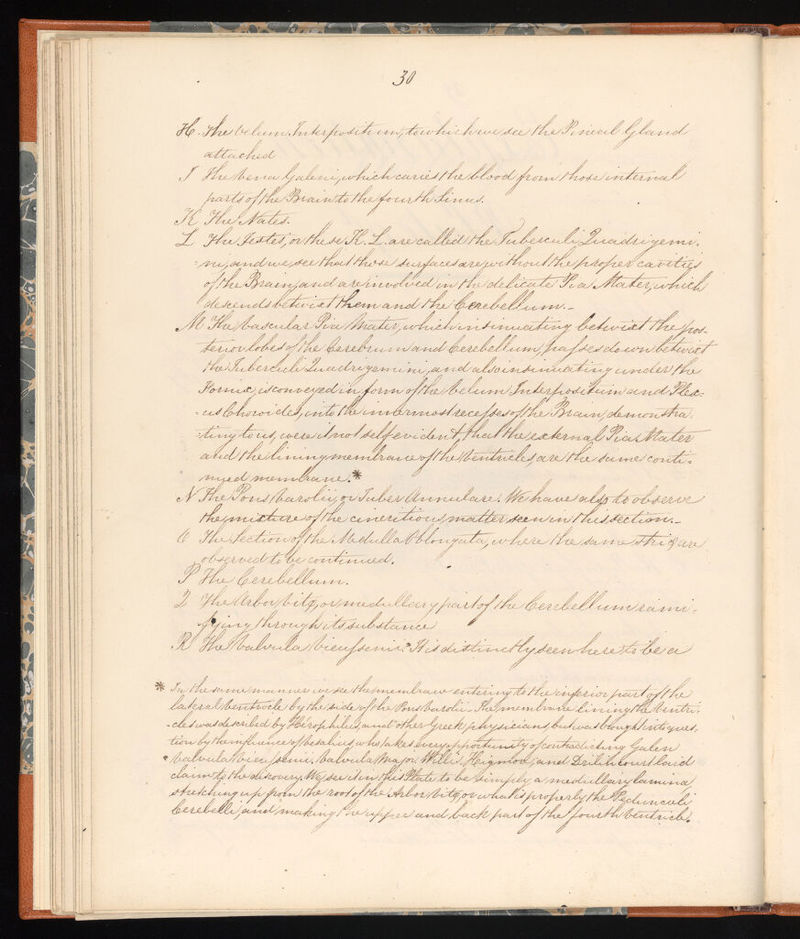 30
H. The Velum Interpositum, to which we see the Pineal Gland
attached
I The Vena Galeni, which caries the blood from those internal
parts of the Brain to the fourth Sinus.
K The Nates.
L The Testes, or these K. L. are called the Tuberculi Quadrigemi-
ni, and we see that these surfaces are without the proper cavities
of the Brain, and are involved in the delicate Pia Mater, which
descends betwixt them and the Cerebellum.-
M The Vascular Pia Mater, which insinuating betwixt the pos-
terior lobes of the Cerebrum and Cerebellum, passes down betwixt
the Tuberculi Quadrigemini, and also insinuating under the
Fornix, is conveyed in form of the Velum Interpositum and Plex-
us Choroides, into the innermost recesses of the Brain, demonstra-
ting to us, were it not self evident, that the external Pia Mater
and the lining membrane of the Ventricles are the same conti-
nued membrane.*
N The Pons Varolii, or Tuber Annulare. We have also to observe
the mixture of the cineritious matter seen in this section.-
O The Section of the Medulla Oblongata, where the same striæ are
observed to be continued.
P The Cerebellum.
Q The Arbor Vitæ, or medullary part of the Cerebellum rami-
fying through its substance
R The Valvula Vieussenii. It is distinctly seen here to be a
* In the same manner we see the membrane entering to the inferior part of the
lateral Ventricle by the side of the Pons Varolii. The membrane lining the Ventri-
cles was described by Herophilus, and other Greek physicians, but was brought into ques-
tion by the influence of Vesalius, who takes every opportunity of contradicting Galen
• Valvula Vieussenii, Valvula Major. Willis, Heigmore, and Drilincourt laid
claim to the discovery. We see it in this Plate to be simply a medullary lamina
stretching up from the root of the Arbor Vitæ, or what is properly the Pedunculi
Cerebelli, and making the upper and back part of the fourth Ventricle.